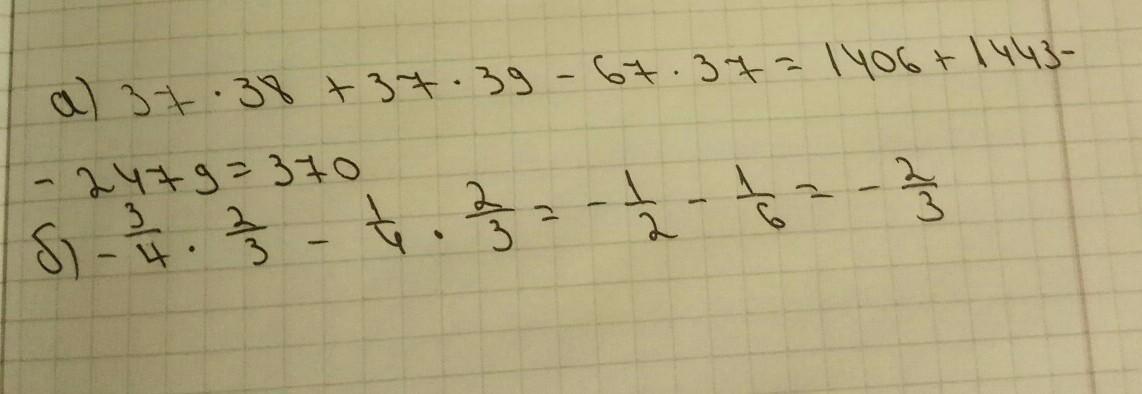 а) 37 · 38 + 37 · 39 - 67 · 37 = 1406 + 1443-
- 2479 = 370
б) - 3/4 · 2/3 - 1/4 · 2/3 = - 1/2 - 1/6 = - 2/3